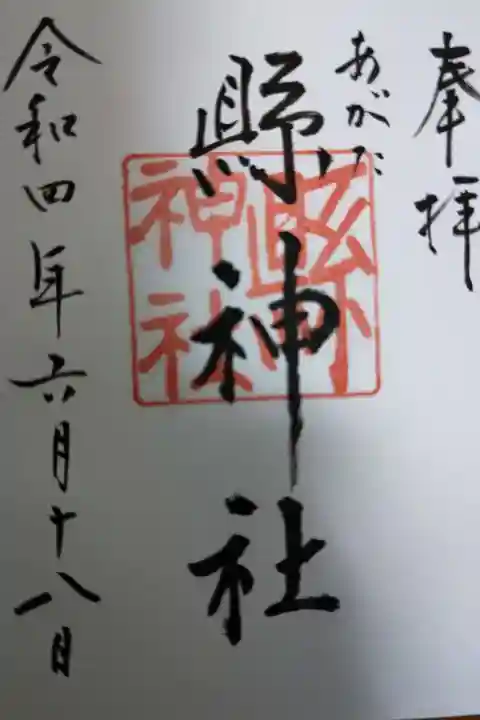 奉拝
あがた
縣神社
縣神社
令和四年六月十八日